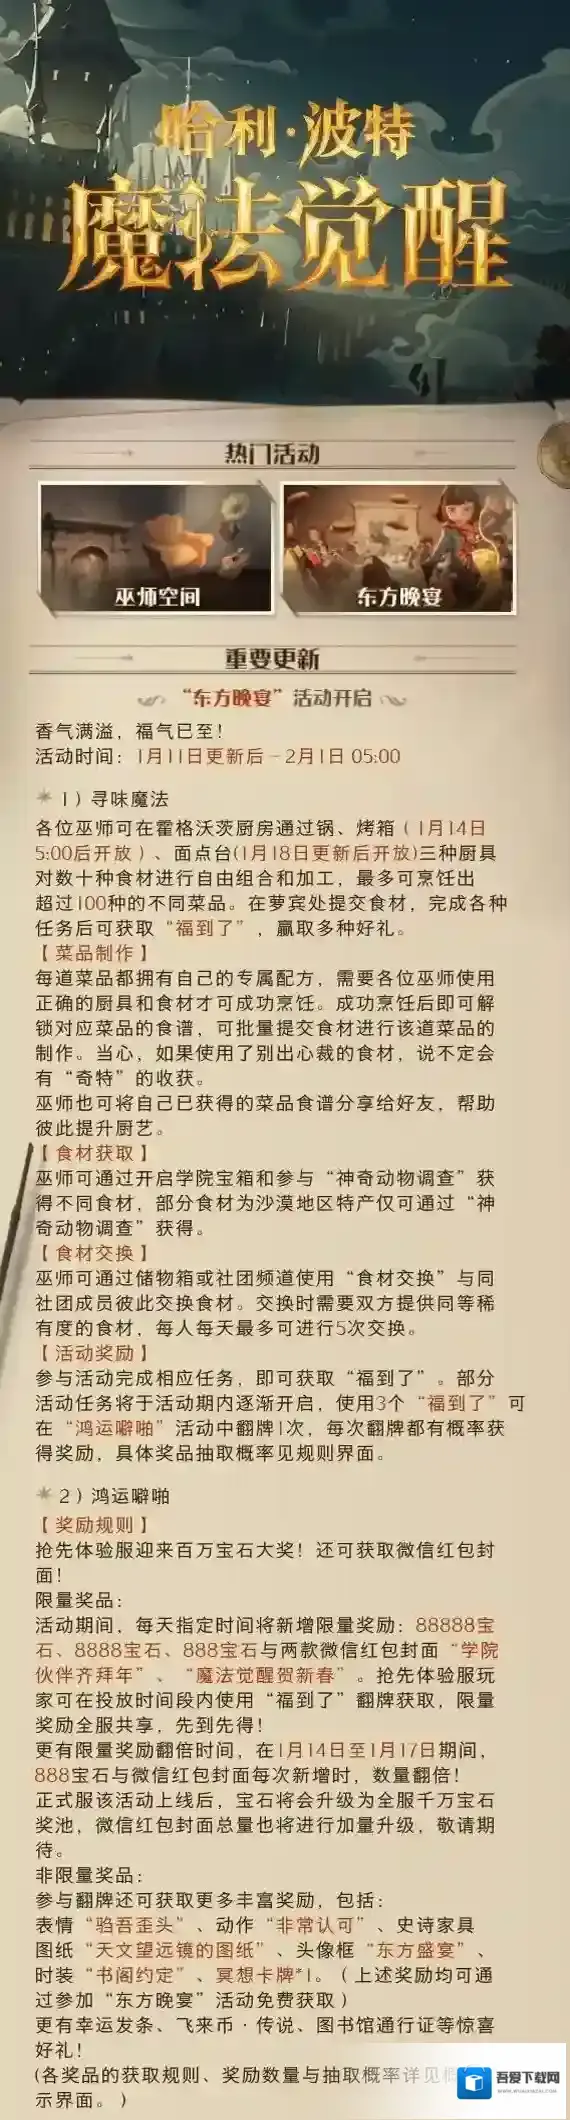 哈利·波特
魔法觉醒
热门活动
巫师空间
东方晚宴
重要更新
“东方晚宴”活动开启
香气满溢，福气已至！
活动时间：1月11日更新后－2月1日 05:00
1）寻味魔法
各位巫师可在霍格沃茨厨房通过锅、烤箱（1月14日
5:00后开放）、面点台(1月18日更新后开放)三种厨具
对数十种食材进行自由组合和加工，最多可烹饪出
超过100种的不同菜品。在萝宾处提交食材，完成各种
任务后可获取“福到了”，赢取多种好礼。
【菜品制作】
每道菜品都拥有自己的专属配方，需要各位巫师使用
正确的厨具和食材才可成功烹饪。成功烹饪后即可解
锁对应菜品的食谱，可批量提交食材进行该道菜品的
制作。当心，如果使用了别出心裁的食材，说不定会
有“奇特”的收获。
巫师也可将自己已获得的菜品食谱分享给好友，帮助
彼此提升厨艺。
【食材获取】
巫师可通过开启学院宝箱和参与“神奇动物调查”获
得不同食材，部分食材为沙漠地区特产仅可通过“神
奇动物调查”获得。
【食材交换】
巫师可通过储物箱或社团频道使用“食材交换”与同
社团成员彼此交换食材。交换时需要双方提供同等稀
有度的食材，每人每天最多可进行5次交换。
【活动奖励】
参与活动完成相应任务，即可获取“福到了”。部分
活动任务将于活动期内逐渐开启，使用3个“福到了”可
在“鸿运噼啪”活动中翻牌1次，每次翻牌都有概率获
得奖励，具体奖品抽取概率见规则界面。
2）鸿运噼啪
【奖励规则】
抢先体验服迎来百万宝石大奖！还可获取微信红包封
面！
限量奖品：
活动期间，每天指定时间将新增限量奖励：88888宝
石、8888宝石、888宝石与两款微信红包封面“学院
伙伴齐拜年”、“魔法觉醒贺新春”。抢先体验服玩
家可在投放时间段内使用“福到了”翻牌获取，限量
奖励全服共享，先到先得！
更有限量奖励翻倍时间，在1月14日至1月17日期间，
888宝石与微信红包封面每次新增时，数量翻倍！
正式服该活动上线后，宝石将会升级为全服千万宝石
奖池，微信红包封面总量也将进行加量升级，敬请期
待。
非限量奖品：
参与翻牌还可获取更多丰富奖励，包括：
表情“驺吾歪头”、动作“非常认可”、史诗家具
图纸“天文望远镜的图纸”、头像框“东方盛宴”、
时装“书阁约定”、冥想卡牌*1。（上述奖励均可通
过参加“东方晚宴”活动免费获取）
更有幸运发条、飞来币·传说、图书馆通行证等惊喜
好礼！
(各奖品的获取规则、奖励数量与抽取概率详见
示界面。）
吾爱下载网